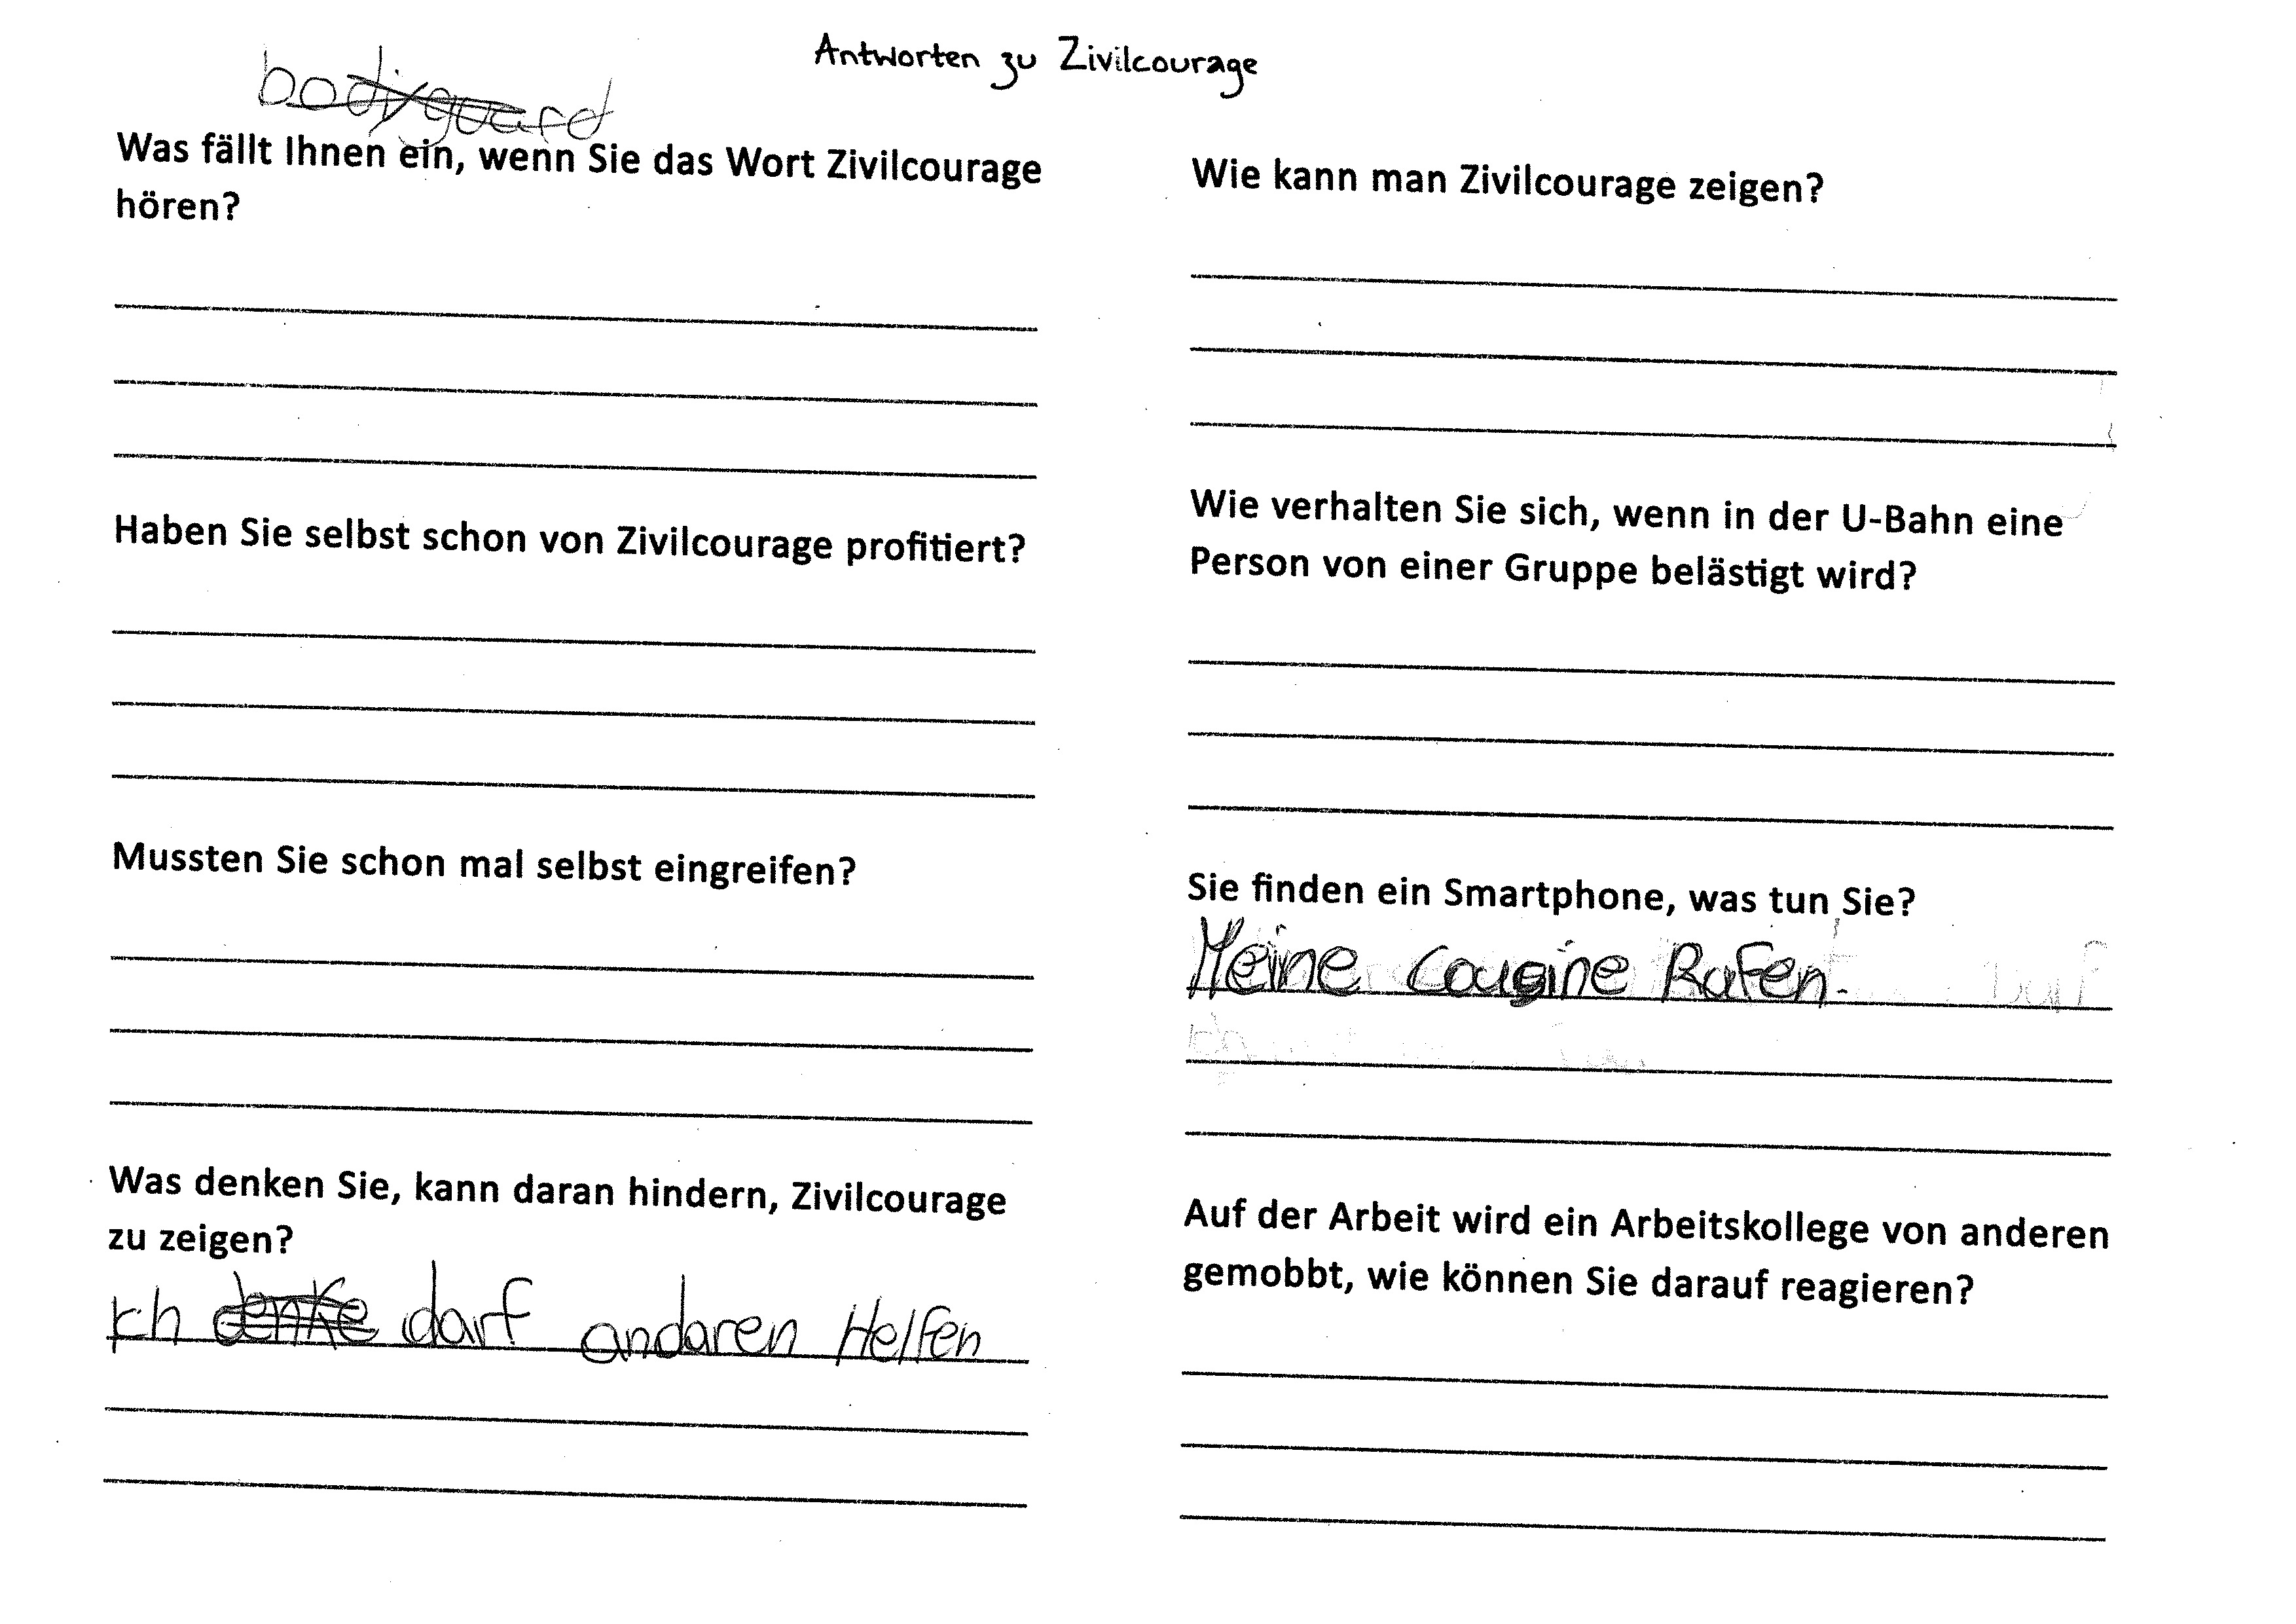 Antworten zu Zivilcourage
bodyguard
Was fällt Ihnen ein, wenn Sie das Wort Zivilcourage
hören?
Haben Sie selbst schon von Zivilcourage profitiert?
Mussten Sie schon mal selbst eingreifen?
Was denken Sie, kann daran hindern, Zivilcourage
zu zeigen?
Ich denke darf andaren Helfen
Wie kann man Zivilcourage zeigen?
Wie verhalten Sie sich, wenn in der U-Bahn eine
Person von einer Gruppe belästigt wird?
Sie finden ein Smartphone, was tun Sie?
Meine Cousine Rufen.
Auf der Arbeit wird ein Arbeitskollege von anderen
gemobbt, wie können Sie darauf reagieren?